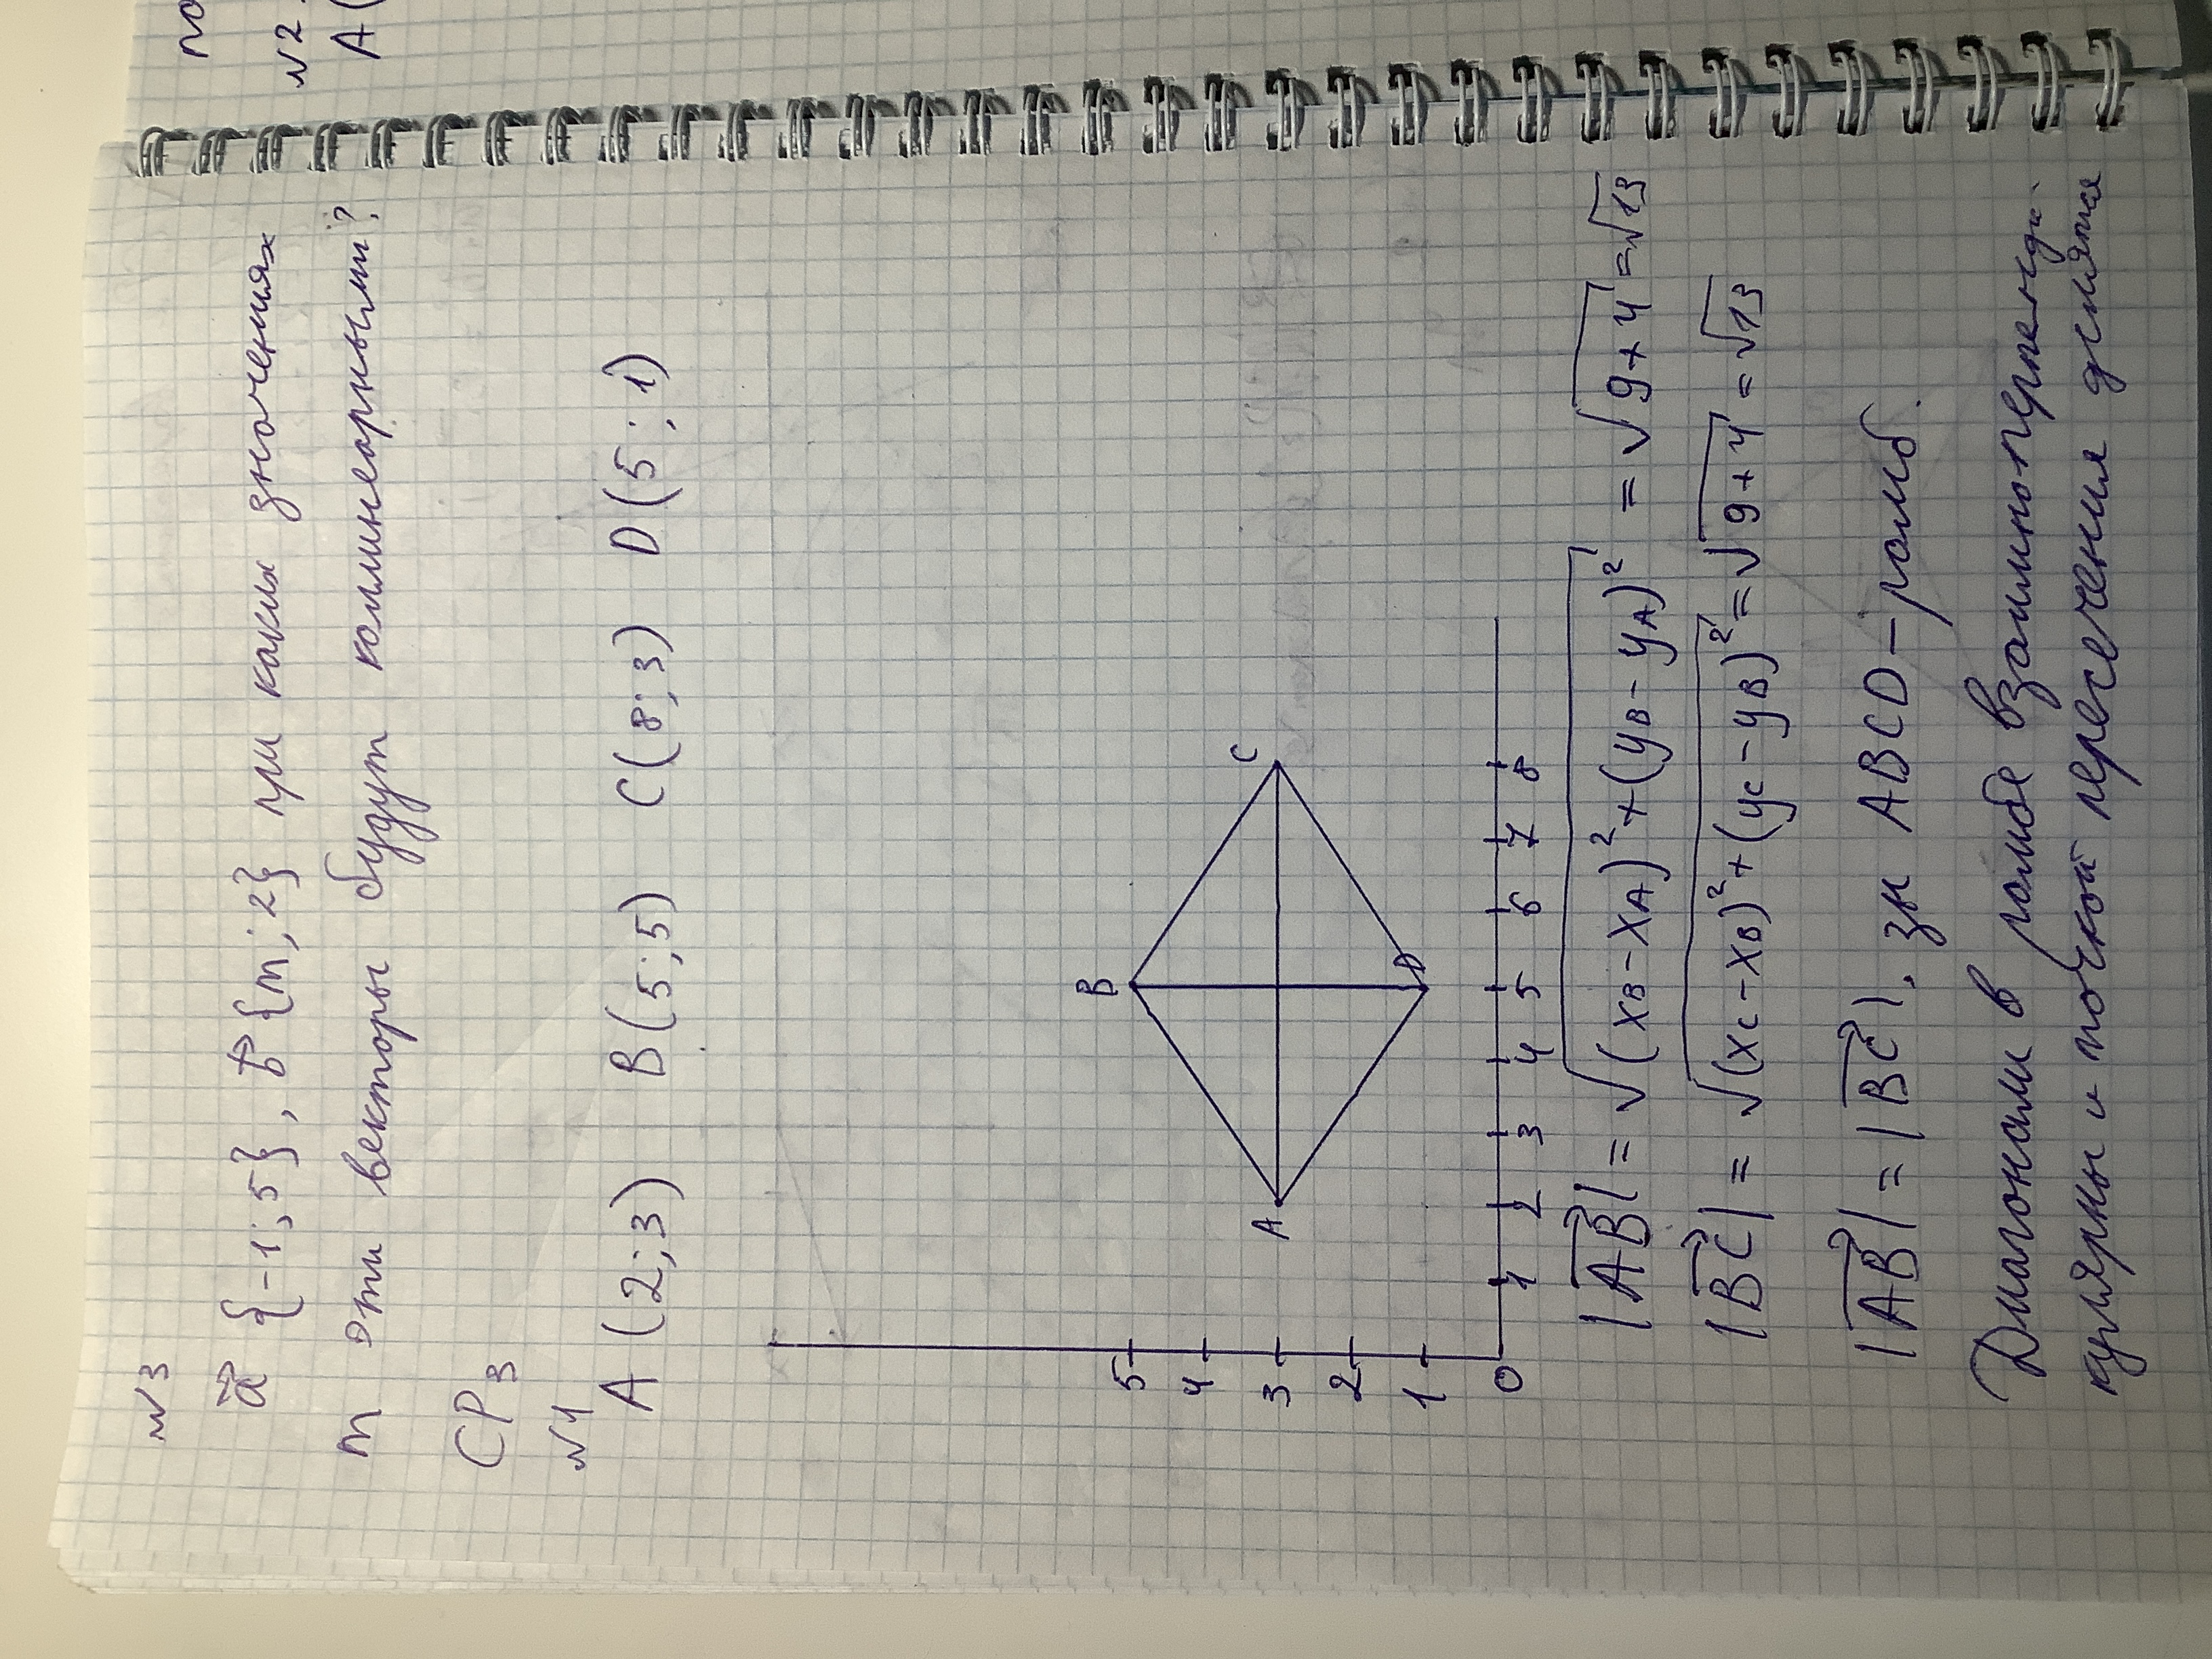 №3
a⃗ {-1; 5}, b⃗ {m; 2} при каких значениях
m эти векторы будут коллинеарными?
СР3
№1
A (2; 3) B (5; 5) C (8; 3) D (5; 1)
B
5
4
A 3 C
2
1 D
0 1 2 3 4 5 6 7 8
|AB⃗| = √((xB - xA)² + (yB - yA)²) = √(9+4) = √13
|BC⃗| = √((xC - xB)² + (yC - yB)²) = √(9+4) = √13
|AB⃗| = |BC⃗|. зн ABCD - ромб.
Диагонали в ромбе взаимноперпенди-
кулярны и точкой пересечения делятся
по
№2.
A(